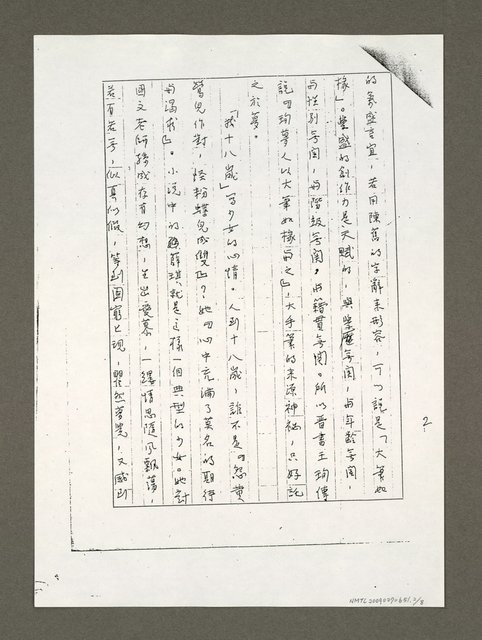 的豐盛言宜，若用陳舊的字辭來形容，可以說是「大筆如
椽」。豐盛的創作力是天賦的，與學歷無關，與年齡無關，
與性別無關，與階級無關，與籍貫無關。所以晉書王珣傳
說「珣夢人以大筆如椽與之」，大手筆的來源神祕，只好託
之於夢。
「我十八歲」寫少女的心情。人到十八歲，誰不是「怨黃
鶯兒作對，怪粉蝶兒成雙」？她心中充滿了莫名的期待
與渴求。小說中的薛琪就是這樣一個典型的少女。她對
國文老師 存有幻想，生出愛慕，一縷情思隨風飄蕩，
若有若無，似真似假，等到圖窮匕現，瞿然夢覺，又感到
2
NMTL20090290651.2/8